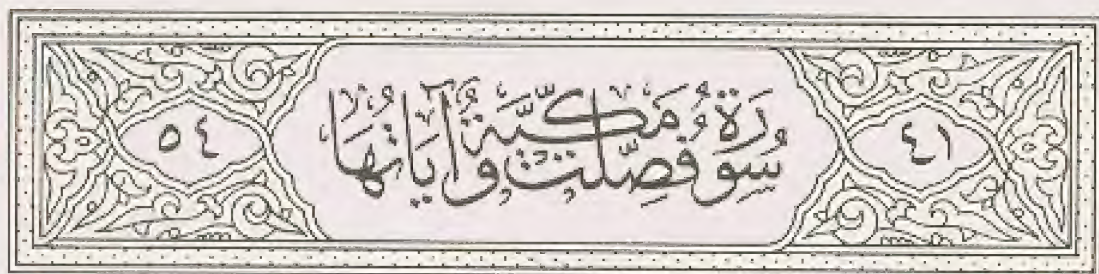 ٤١ سُورَةُ فُصِّلَتْ مَكِّيَّةٌ وَآيَاتُهَا ٥٤